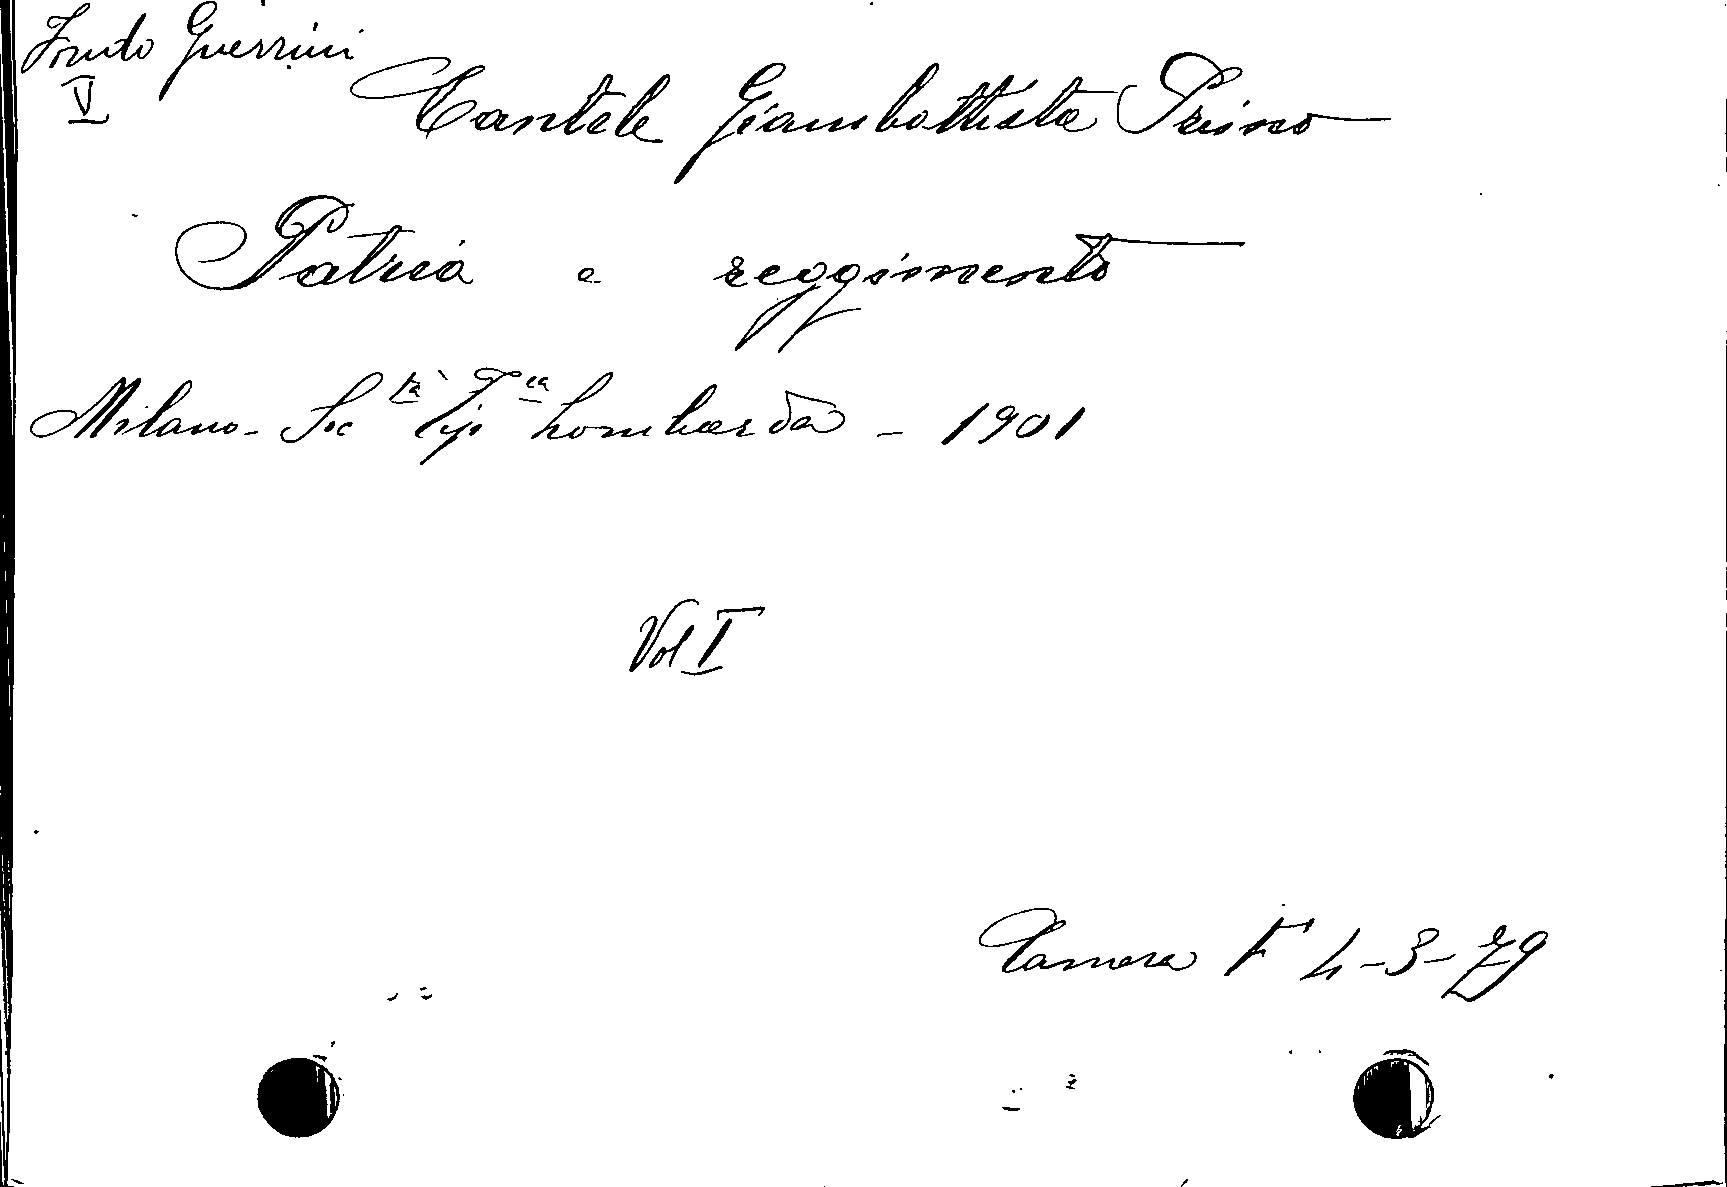 Fondo Guerrini
V
Cantele Giambattista Primo
Patria e reggimento
Milano - Soc.tà Tip.ca Lombarda - 1901
Vol I
Camera F 4-3-79